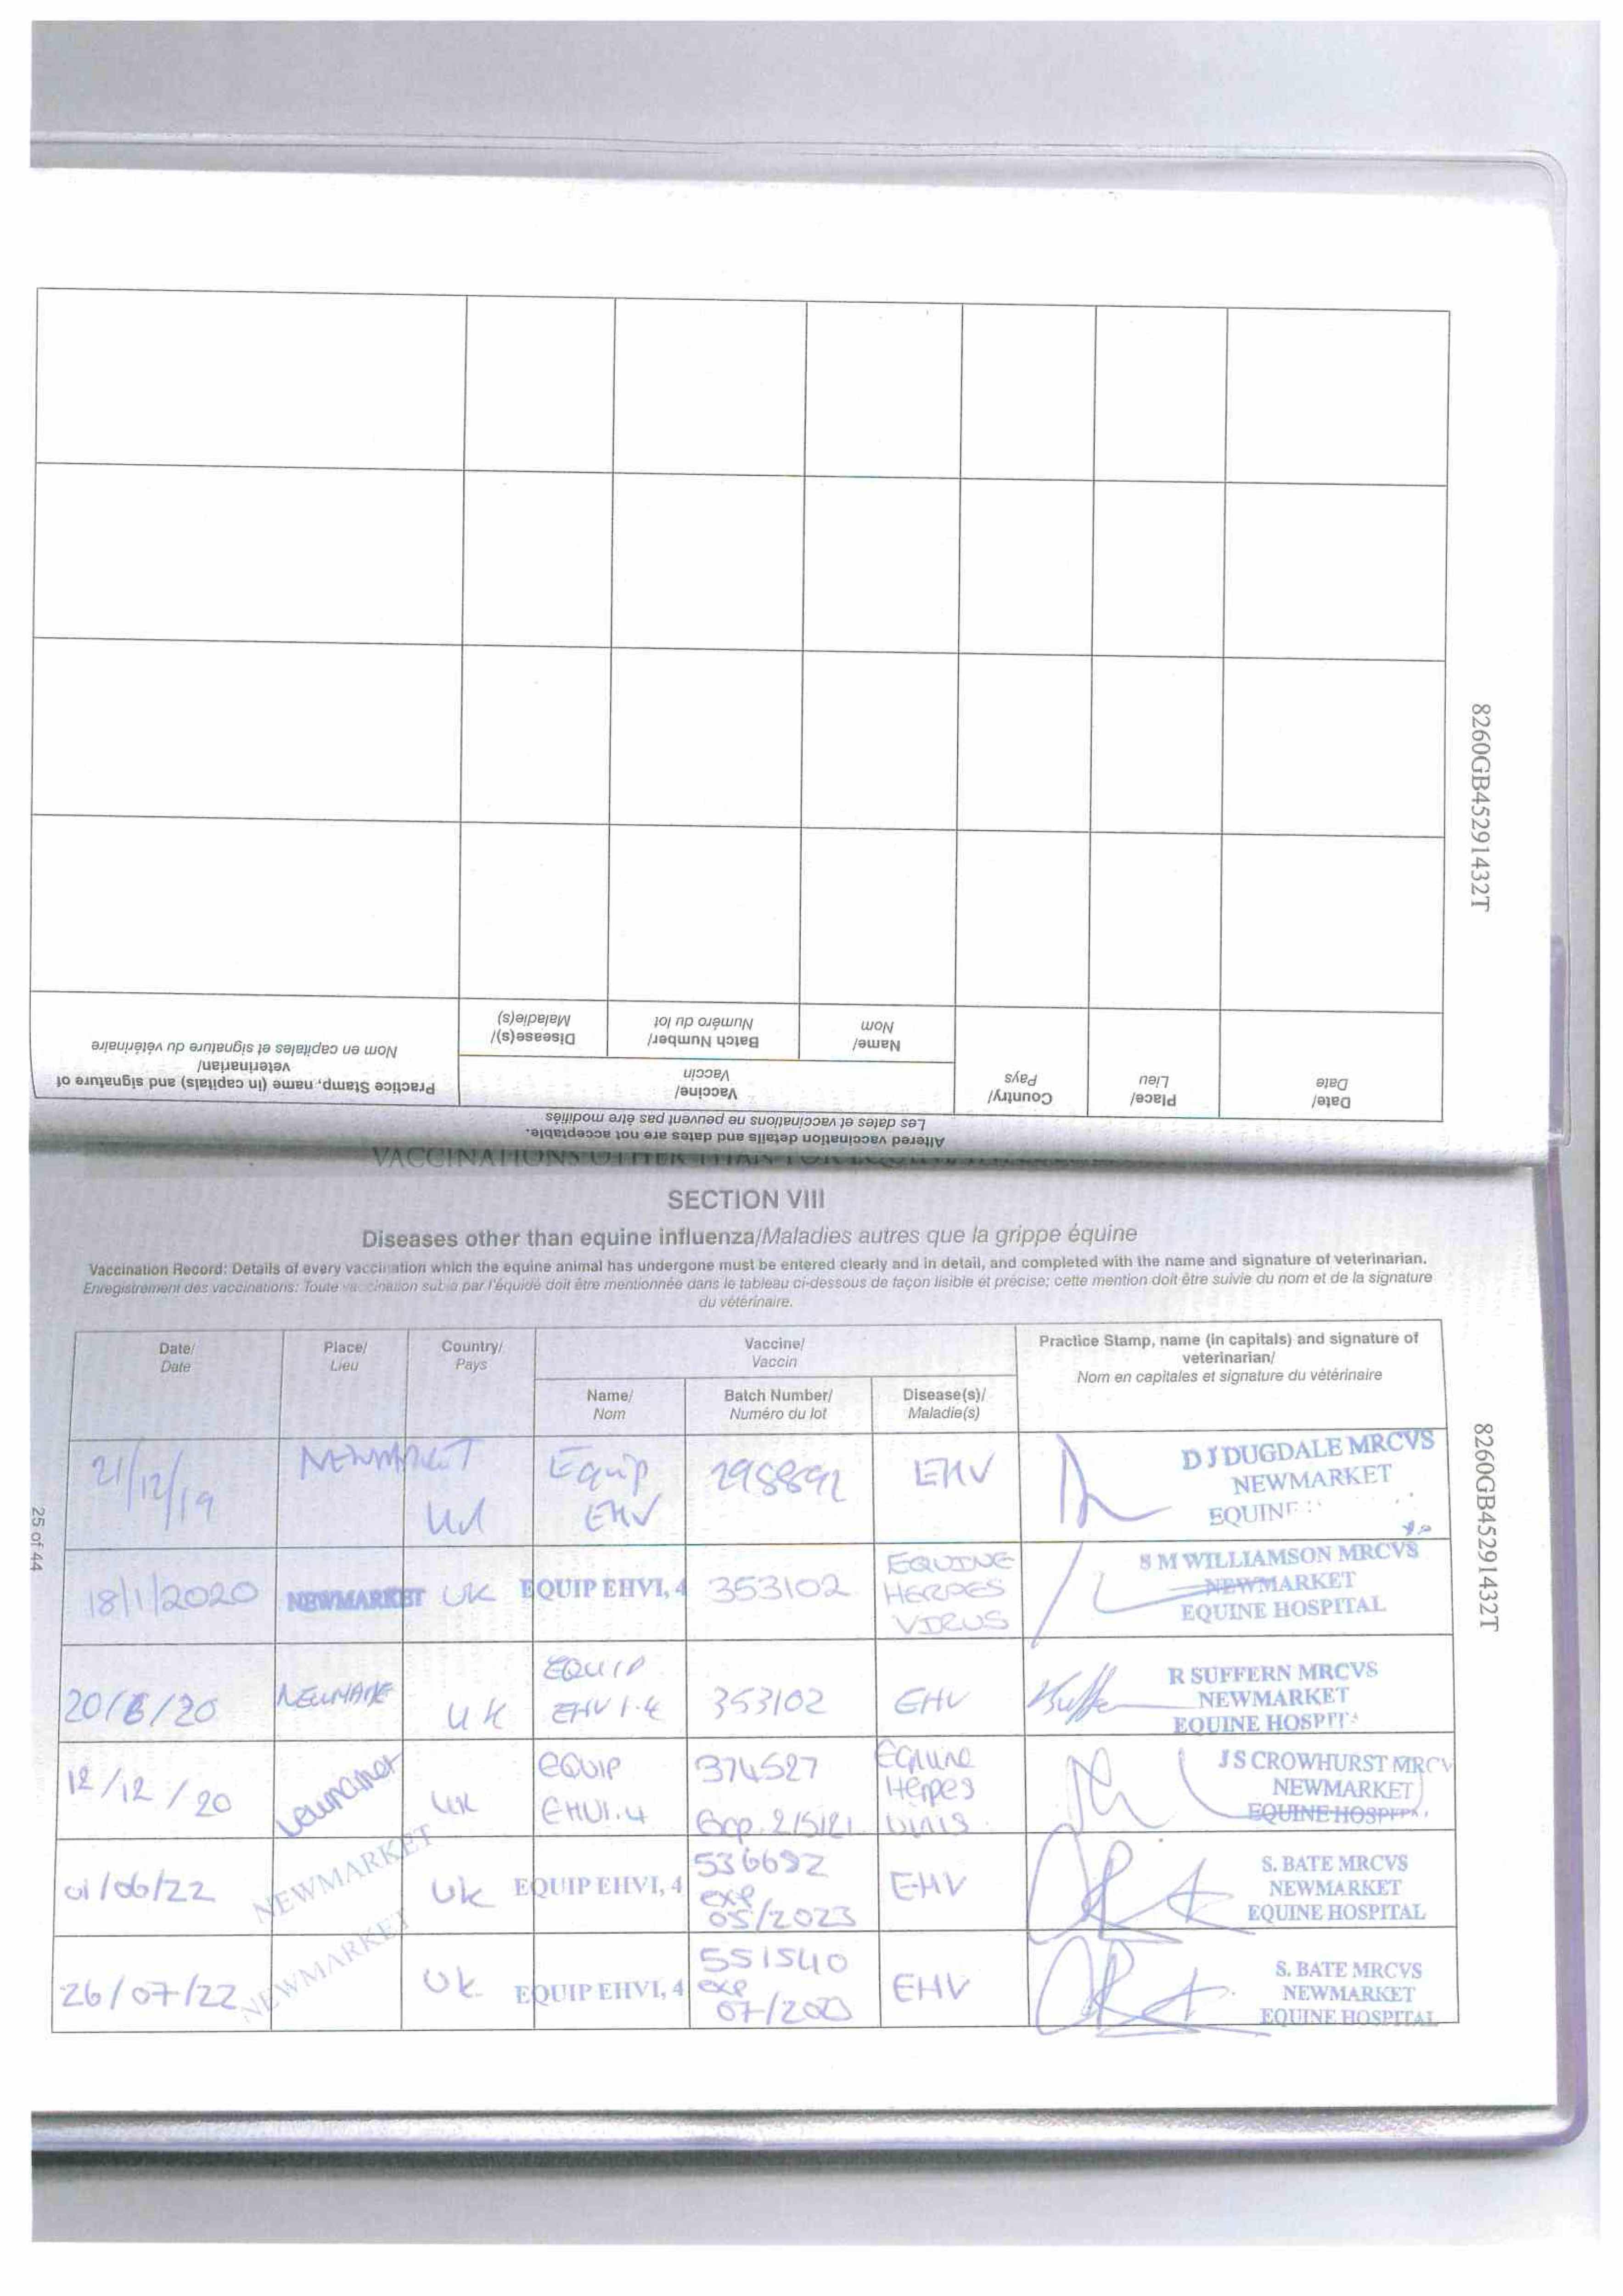 Altered vaccination details and dates are not acceptable.
Les dates et vaccinations ne peuvent pas être modifiés
Date/
Date
Place/
Lieu
Country/
Pays
Vaccine/
Vaccin
Practice Stamp, name (in capitals) and signature of
veterinarian/
Nom en capitales et signature du vétérinaire
Name/
Nom
Batch Number/
Numéro du lot
Disease(s)/
Maladie(s)
8260GB45291432T
SECTION VIII
Diseases other than equine influenza/Maladies autres que la grippe équine
Vaccination Record: Details of every vaccination which the equine animal has undergone must be entered clearly and in detail, and completed with the name and signature of veterinarian.
Enregistrement des vaccinations: Toute vaccination subie par l'équidé doit être mentionnée dans le tableau ci-dessous de façon lisible et précise; cette mention doit être suivie du nom et de la signature
du vétérinaire.
Date/
Date
Place/
Lieu
Country/
Pays
Vaccine/
Vaccin
Practice Stamp, name (in capitals) and signature of
veterinarian/
Nom en capitales et signature du vétérinaire
Name/
Nom
Batch Number/
Numéro du lot
Disease(s)/
Maladie(s)
21/12/19 NEWMARKET Equip EHV 298892 EHV
D J DUGDALE MRCVS
NEWMARKET
18/1/2020 NEWMARKET UK EQUIP EHV1, 4 353102 EQUINE
HERPES
VIRUS
S M WILLIAMSON MRCVS
NEWMARKET
EQUINE HOSPITAL
20/6/20 UK EQUIP
EHV 1.4 353102 EHV
R SUFFERN MRCVS
NEWMARKET
EQUINE HOSPIT
12/12/20 Newmarket UK EQUIP
EHV1.4 374527
Exp. 2/5/21 Equine
Herpes
Virus
J S CROWHURST MRCV
NEWMARKET
EQUINE HOSPITA
01/06/22 NEWMARKET UK EQUIP EHV1, 4 536692
exp
05/2023 EHV
S. BATE MRCVS
NEWMARKET
EQUINE HOSPITAL
26/07/22 NEWMARKET UK EQUIP EHV1, 4 551540
exp EHV
S. BATE MRCVS
NEWMARKET
EQUINE HOSPITAL
25 of 44
8260GB45291432T